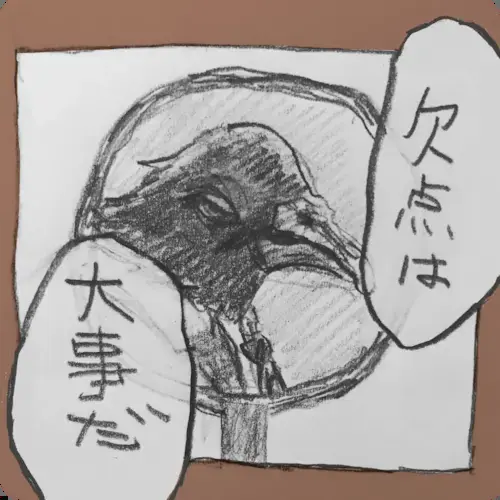 欠点は
大事だ